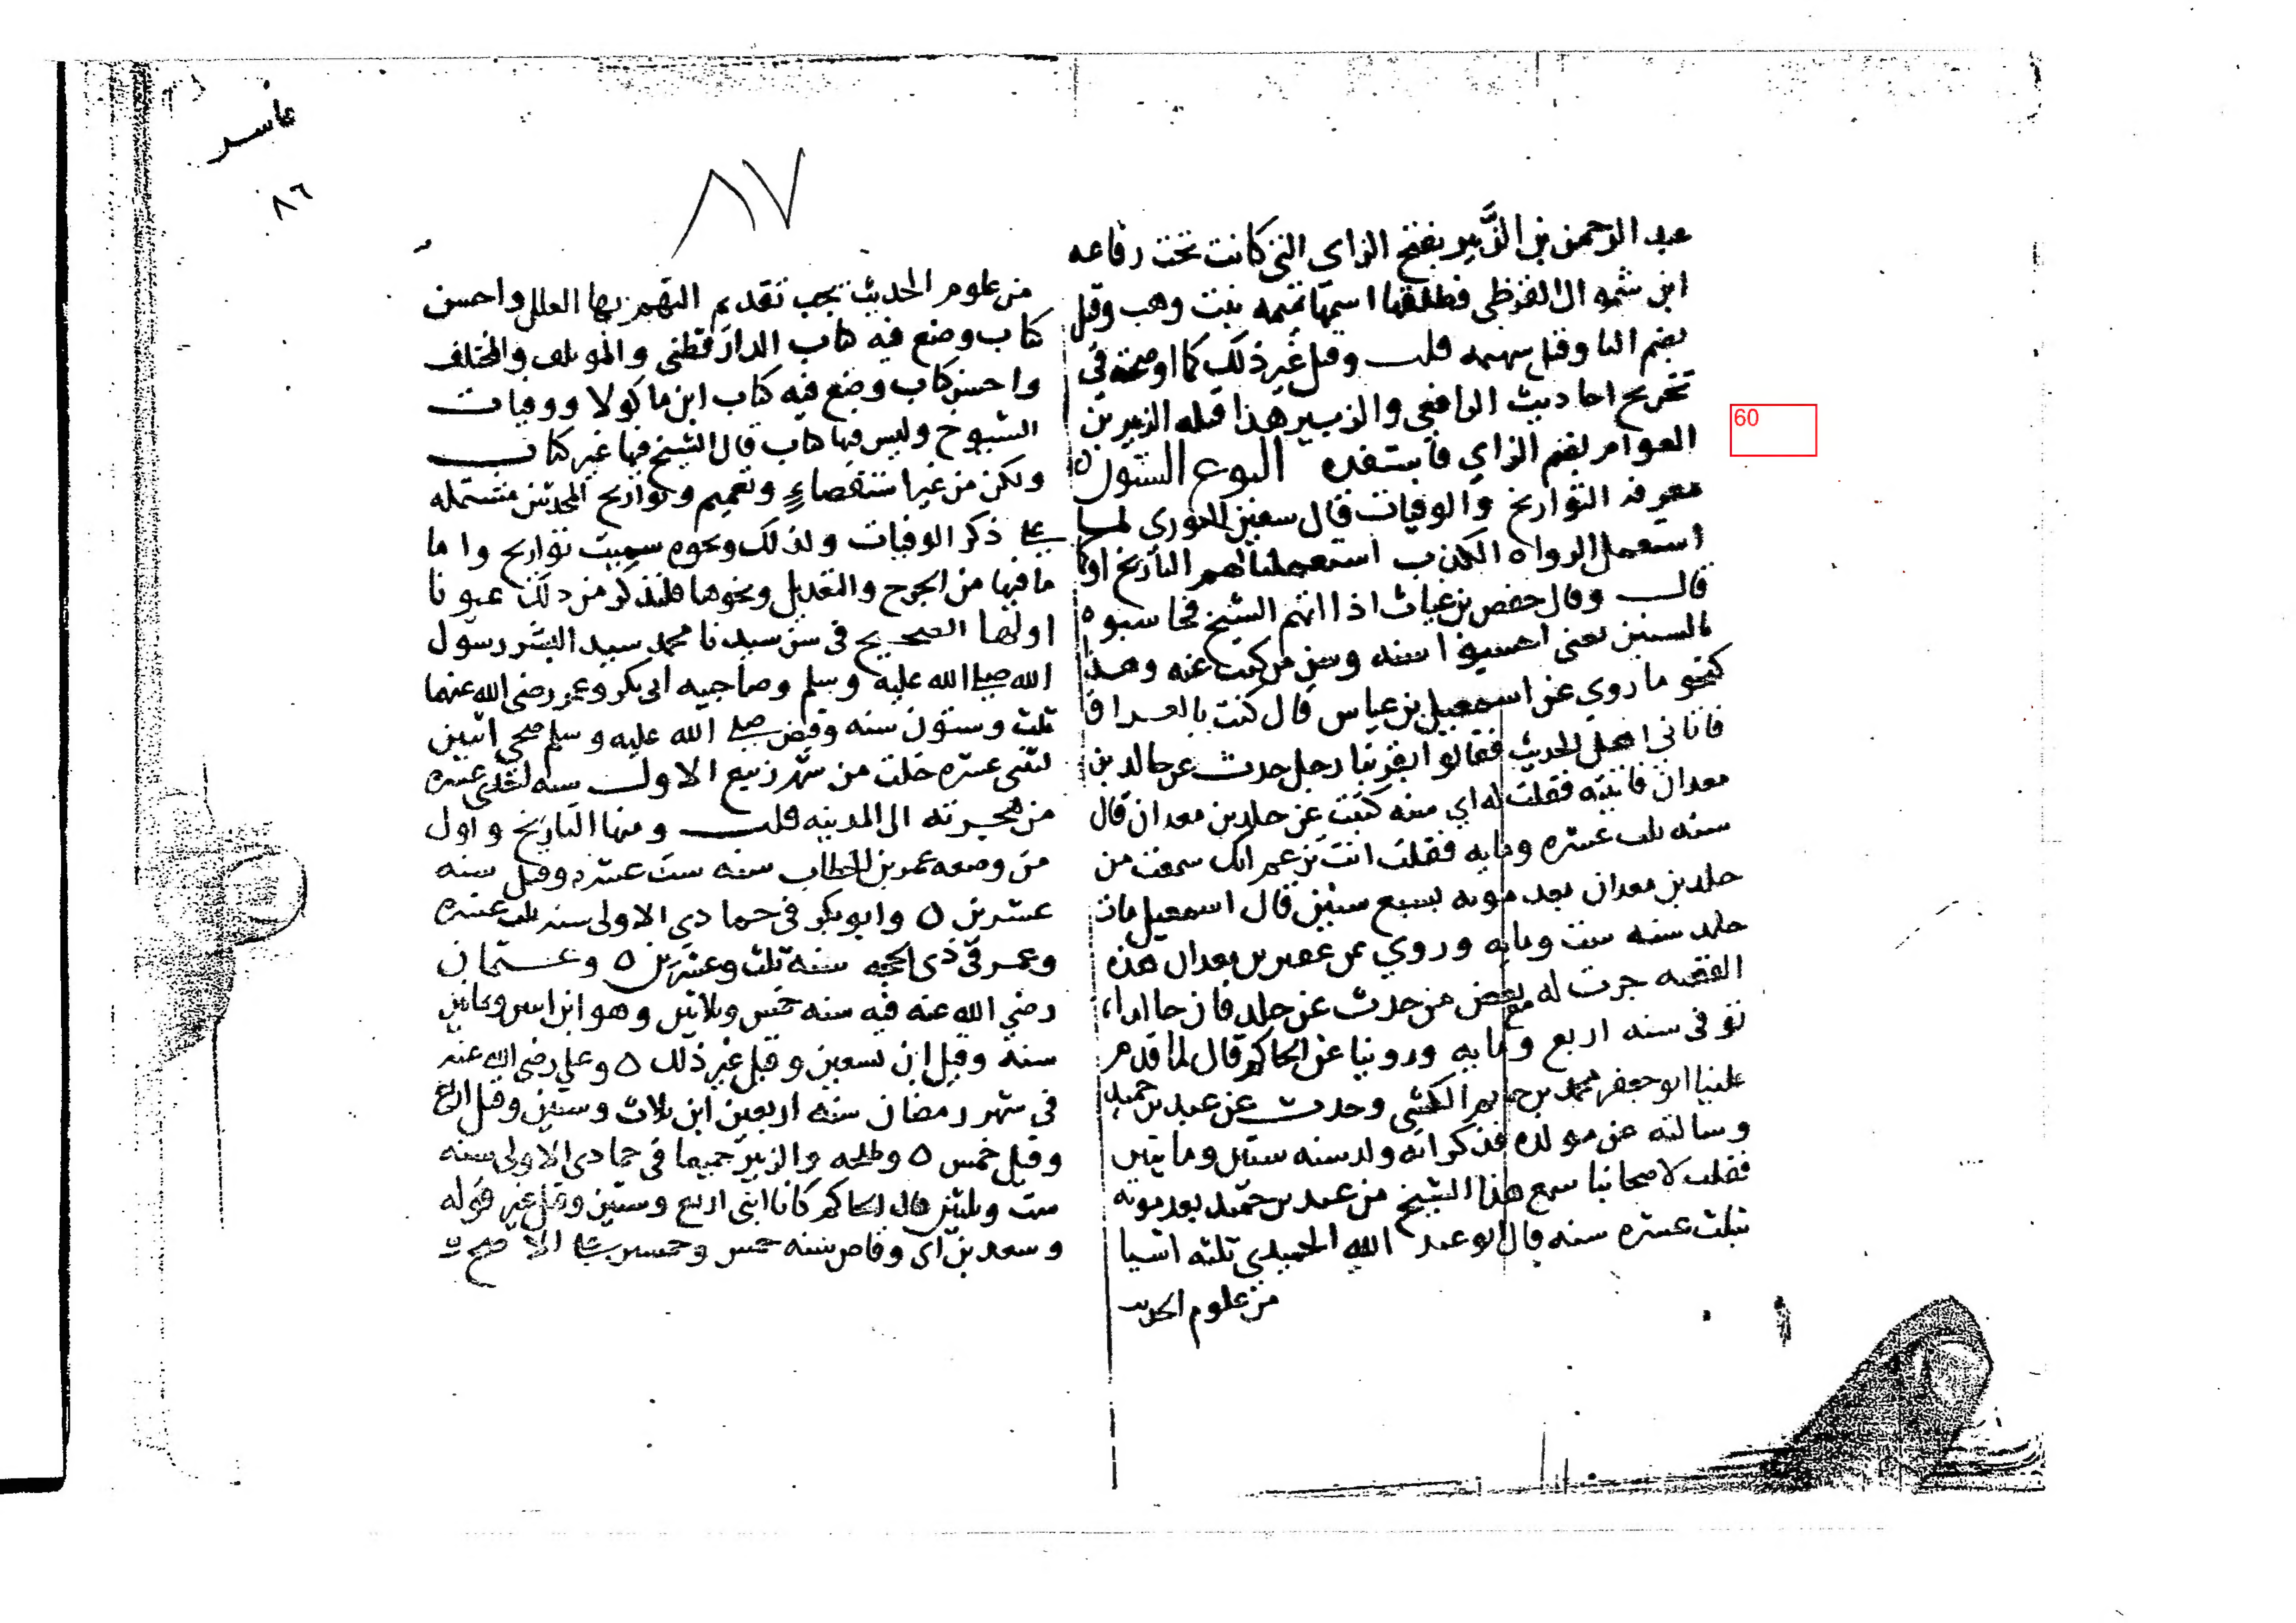 عبد الرحمن بن الزَّبير بفتح الزاي التي كانت تحت رفاعه
ابن شموال القرظي فطلقها اسمها تميمه بنت وهب وقيل
بضم التا وقيل سهيمه قلت وقيل غير ذلك كما اوضحته في
تخريج احاديث الرافعي والزبير هذا قبله الزبير بن
العوام بضم الزاي فاستفده النوع الستون
60
معرفة التواريخ والوفيات قال سفين الثوري لما
استعمل الرواه الكذب استعملنا لهم التاريخ او كما
قال وقال حفص بن غياث اذا اتهم الشيخ فحاسبوه
بالسنين يعني احسبوا سنه وسن من كتب عنه وهذا
كنحو ما روي عن اسمعيل بن عياش قال كنت بالعراق
فاتاني اهل الحديث فقالوا هاهنا رجل يحدث عن خالد بن
معدان فاتيته فقلت له اي سنه كتبت عن خلد بن معدان قال
سنه ثلث عشره ومايه فقلت انت تزعم انك سمعت من
خلد بن معدان بعد موته بسبع سنين قال اسمعيل مات
خلد سنه ست ومايه وروي عن عفير بن معدان هذه
القصه جرت له مع بعض من حدث عن خلد فان
توفي سنه اربع ومايه وروينا عن الحاكم قال لما قدم
علينا ابو جعفر محمد بن حاتم الكشي وحدث عن عبد بن حميد
وسالته عن مولده فذكر انه ولد سنه ستين وماتين
فقلت لاصحابنا سمع هذا الشيخ من عبد بن حميد بعد موته
بثلث عشره سنه قال ابو عبد الله الحميدي ثلثه اشيا
من علوم الحديث
٨٧
٨٦
من علوم الحديث يجب تقديم التهمم بها العلل واحسن
كتاب وضع فيه كتاب الدارقطني والموتلف والمختلف
واحسن كتاب وضع فيه كتاب ابن ماكولا ووفيات
الشيوخ وليس فيها كتاب قال الشيخ فيها غير كتاب
ولكن من غير استقصاءٍ وتعميم وتواريخ المحدثين مشتمله
على ذكر الوفيات ولذلك ونحوه سميت تواريخ واما
ما فيها من الجرح والتعديل ونحوها فلنذكر من ذلك عيونا
اولها الصحيح في سن سيدنا محمد سيد البشر رسول
الله صلى الله عليه وسلم وصاحبيه ابي بكر وعمر رضي الله عنهما
ثلث وستون سنه وقبض صلى الله عليه وسلم ضحى اثنين
لثنتى عشره خلت من شهر ربيع الاول سنه احدى عشره
من هجرته الى المدينه قلت ومنها التاريخ واول
من وضعه عمر بن الخطاب سنه ست عشره وقيل سنه
عشرين ه وابو بكر في جمادي الاولى سنه ثلث عشره
وعمر في ذي الحجه سنه ثلث وعشرين ه وعثمان
رضي الله عنه فيه سنه خمس وثلاثين وهو ابن اثنين وثمانين
سنة وقيل ابن تسعين وقيل غير ذلك ه وعلي رضي الله عنه
في شهر رمضان سنه اربعين ابن ثلاث وستين وقيل اربع
وقيل خمس ه وطلحه والزبير جميعا في جمادى الاولى سنه
ست وثلثين قال الحاكم كانا ابنى اربع وستين وقيل غير قوله
وسعد بن ابي وقاص سنه خمس وخمسين على الاصح